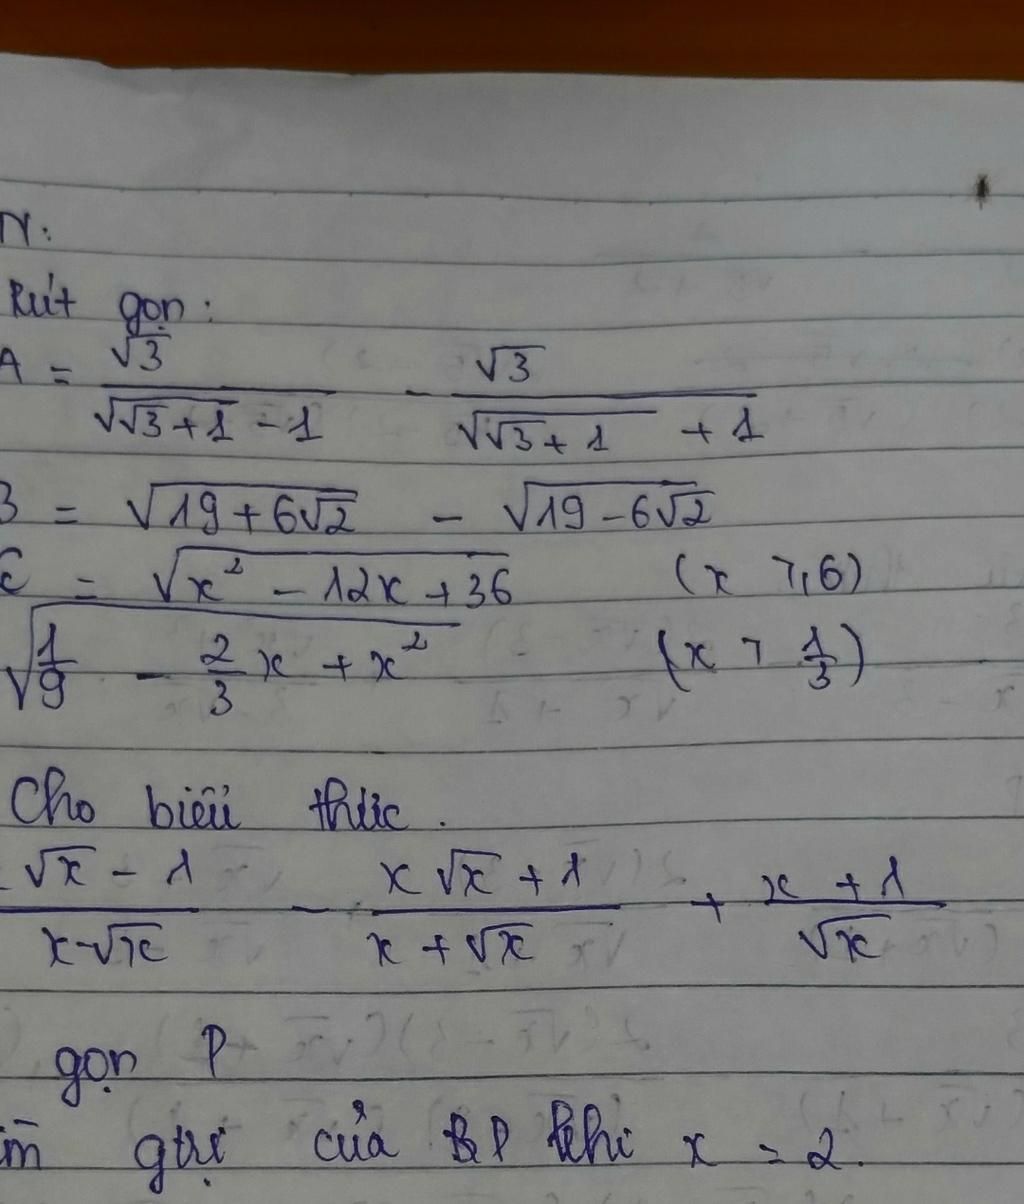 N:
Rút gọn:
A = \frac{\sqrt{3}}{\sqrt{\sqrt{3}+1} - 1} - \frac{\sqrt{3}}{\sqrt{\sqrt{3}+1} + 1}
B = \sqrt{19+6\sqrt{2}} - \sqrt{19-6\sqrt{2}}
C = \sqrt{x^2 - 12x + 36} (x ≥ 6)
\sqrt{\frac{1}{9} - \frac{2}{3}x + x^2} (x > \frac{1}{3})
Cho biểu thức.
\frac{\sqrt{x} - 1}{x - \sqrt{x}} - \frac{x\sqrt{x} + 1}{x + \sqrt{x}} + \frac{x + 1}{\sqrt{x}}
gọn P
ìm gtrị của P khi x = 2.